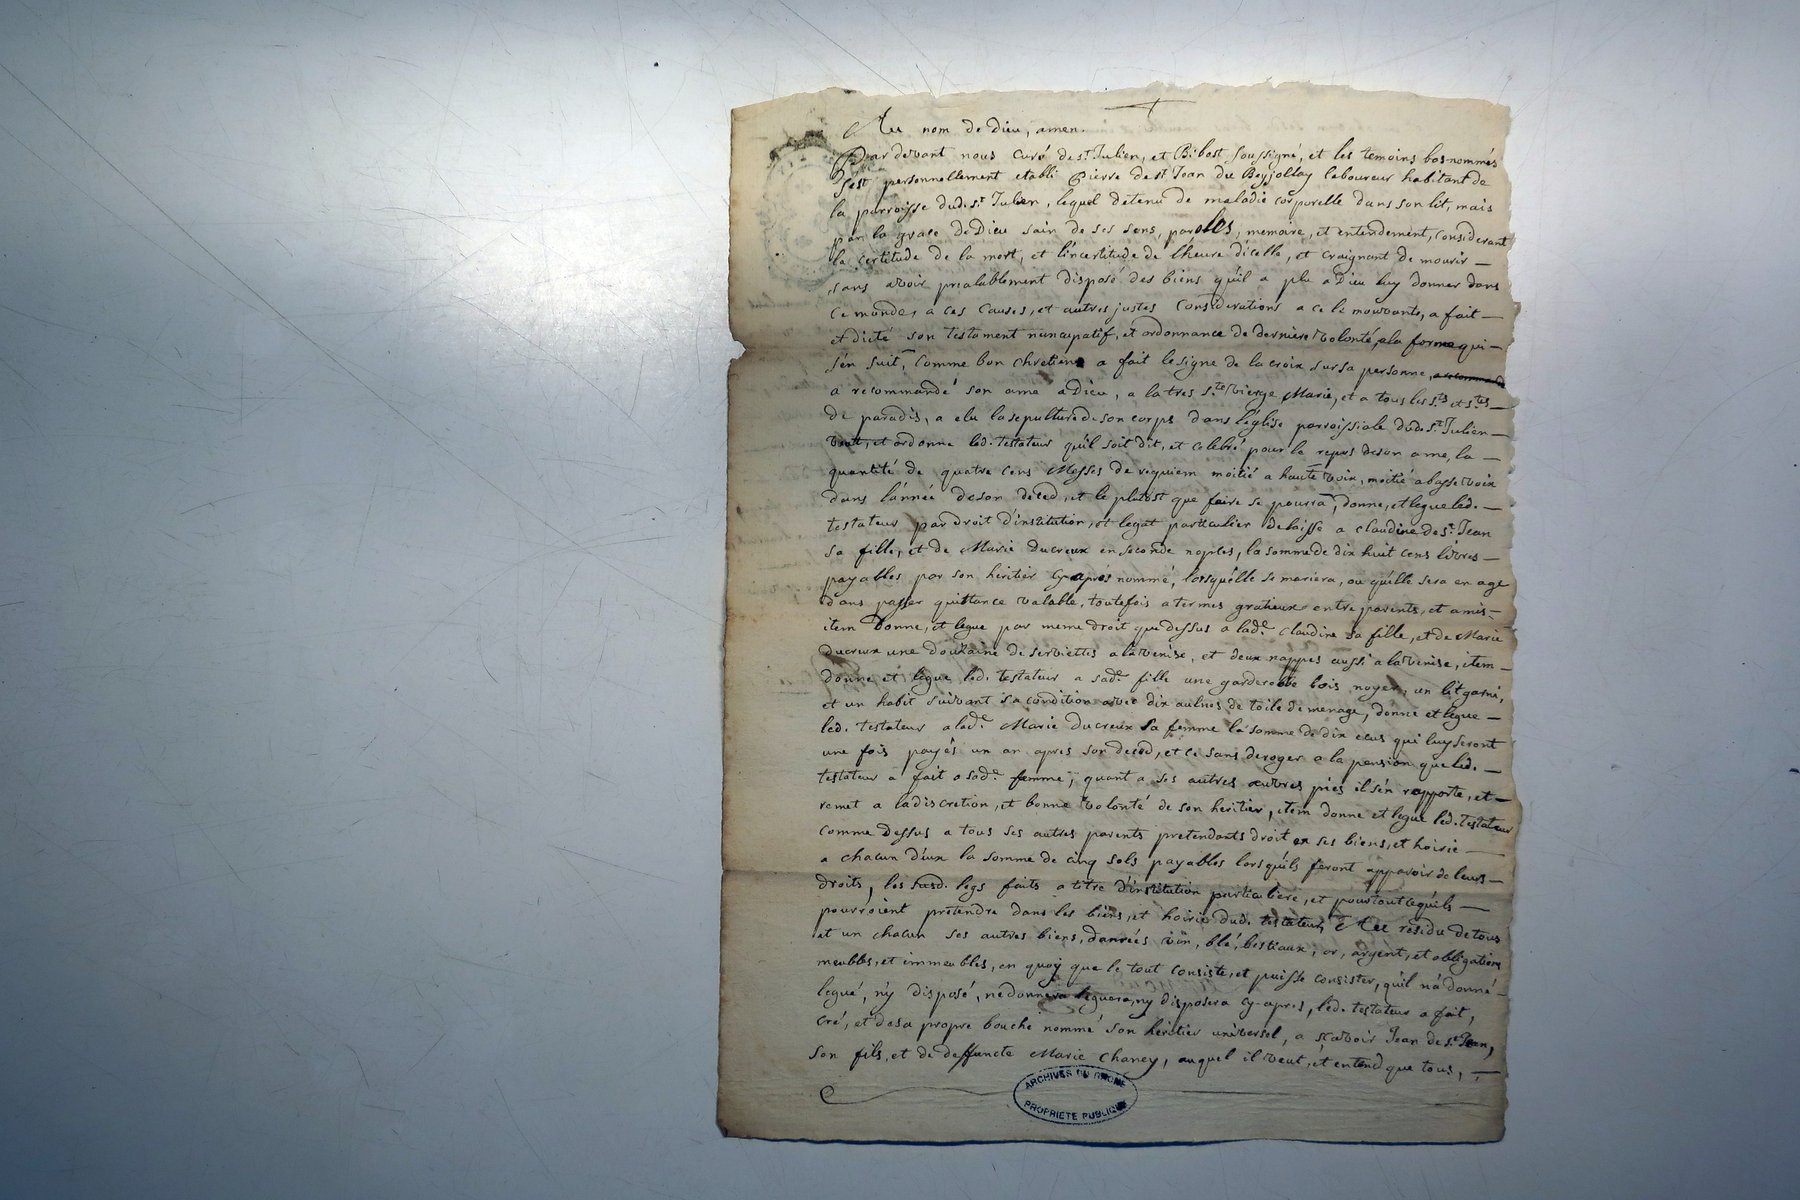 Au nom de Dieu, amen.
Par devant nous curé de st Julien, et Bibost soussigné, et les temoins bas nommés
s'est personnellement etabli Pierre de st Jean du Beyjollay laboureur habitant de
la parroisse dudi st Julien, lequel detenu de maladie corporelle dans son lit, mais
par la grace de Dieu sain de ses sens, parolles, memoire, et entendement, considerant
la certitude de la mort, et l'incertitude de l'heure d'icelle, et craignant de mourir —
sans avoir prealablement disposé des biens qu'il a plu a Dieu luy donner dans
ce monde, a ces causes, et autres justes considerations a ce le mouvants, a fait —
et dicté son testament nuncupatif, et ordonnance de derniere volonté, a la forme qui —
s'en suit, comme bon chretien a fait le signe de la croix sur sa personne, a recommandé
a recommandé son ame a Dieu, a la tres ste vierge Marie, et a tous les sts et stes —
de paradis, a elu la sepulture de son corps dans l'église parroissiale dudi st Julien —
veut, et ordonne led. testateur qu'il soit dit, et celebré pour le repos de son ame, la —
quantité de quatre cens Messes de requiem moitié a haute voix, moitié a basse voix
dans l'année de son deced, et le plutost que faire se pourra, donne, et legue led. —
testateur par droit d'institution, et legat particulier delaisse a claudine de st Jean
sa fille, et de Marie Ducreux en seconde noptes, la somme de dix huit cens livres —
payables par son heritier cy après nommé, lorsqu'elle se mariera, ou qu'elle sera en age
d'ans passer quittance valable, toutefois a termes gratieux entre parents, et amis —
item Donne, et legue par meme droit que dessus a lade Claudine sa fille, et de Marie
Ducreux une douzaine de serviettes a la venise, et deux nappes aussi a la venise, item —
donne et legue led. testateur a sade fille une garderobbe bois noyer, un lit garni,
et un habit suivant sa condition avec dix aulnes de toile de menage, donne et legue —
led. testateur a lade Marie Ducreux sa femme la somme de dix ecus qui luy seront
une fois payés un an apres son deced, et ce sans deroger a la pension que led. —
testateur a fait a sade femme, quant a ses autres œuvres pies il s'en rapporte, et —
remet a la discretion, et bonne volonté de son heritier, item donne et legue led. testateur
comme dessus a tous ses autres parents pretendants droit en ses biens, et hoirie —
a chacun d'eux la somme de cinq sols payables lorsqu'ils feront apparoir de leurs —
droits, les susd. legs faits a titre d'institution particuliere, et pour tout ce qu'ils —
pourroient pretendre dans les biens, et hoirie dud. testateur, Au residu de tous
et un chacun ses autres biens, danrées vin, blé, bestiaux, or, argent, et obligations
meubles, et immeubles, en quoy que le tout consiste, et puisse consister, qu'il n'a donné —
legué, n'y disposé, ne donnera leguera, ny disposera cy-apres, led. testateur a fait,
cré, et de sa propre bouche nommé son heritier universel, a sçavoir Jean de st Jean,
son fils, et de deffuncte Marie Chaney, auquel il veut, et entend que tous, —
ARCHIVES DU RHÔNE
PROPRIETE PUBLIQUE